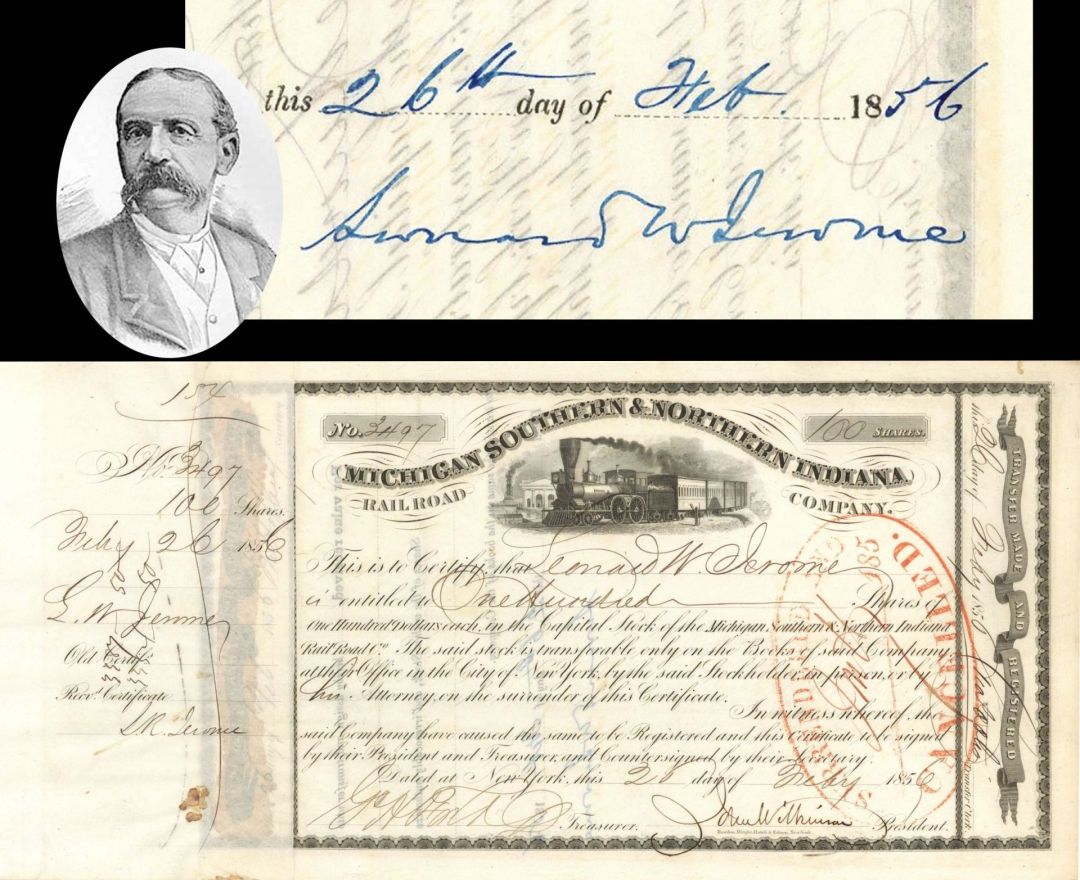 this 26th day of Feb. 1856
Leonard W Jerome
154
No. 3497
100 Shares.
Feby 26 1856
L. W. Jerome
Old Certif.
Recd. Certificate
No. 3497
100 SHARES.
MICHIGAN SOUTHERN & NORTHERN INDIANA
RAIL ROAD COMPANY.
This is to Certify that Leonard W Jerome
is entitled to One Hundred Shares of
One Hundred Dollars each, in the Capital Stock of the Michigan Southern & Northern Indiana
Rail Road Co. The said stock is transferable only on the Books of said Company,
at their Office in the City of New York, by the said Stockholder, in person, or by
his Attorney, on the surrender of this Certificate.
In witness whereof, the
said Company have caused the same to be Registered and this Certificate to be signed
by their President and Treasurer, and Countersigned by their Secretary.
Dated at New York, this 26 day of Feby 1856
Treasurer. John Wilkinson President.
TRANSFER MADE AND REGISTERED
this 26 day of Feby 1856
Transfer Clerk
CANCELLED.
SURRENDERED AND
185